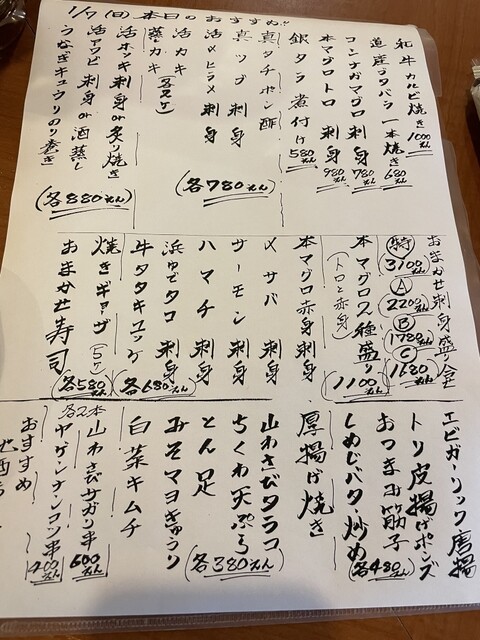 1/7(日)本日のおすすめ!!
和牛カルビ焼き 1000えん
道産ブタバラ一本焼き 680えん
コシナガマグロ刺身 780えん
本マグロトロ刺身 980えん
銀タラ煮付け 580えん
真タチポン酢
真ツブ刺身
活〆ヒラメ刺身
(各780えん)
活カキ
蒸カキ
活ホッキ刺身or炙り焼き
活アワビ刺身or酒蒸し
うなぎキュウリのり巻き
(各880えん)
おまかせ刺身盛り合
特 3100えん
A 2200えん
B 1780えん
C 1680えん
本マグロ2種盛り
(トロと赤身)
1100えん
本マグロ赤身刺身
〆サバ刺身
サーモン刺身
ハマチ刺身
浜ゆでタコ刺身
牛タタキユッケ
(各680えん)
焼きギョーザ(5ケ)
おまかせ寿司
(各580えん)
エビガーリック唐揚
トリ皮揚げポンズ
おつまみ筋子
しめじバター炒め
(各480えん)
厚揚げ焼き
山わさびタラコ
ちくわ天ぷら
とん足
みそマヨきゅうり
白菜キムチ
(各380えん)
各2本
山わさびサガリ串 600えん
ヤゲンナンコツ串 400えん
おすすめ